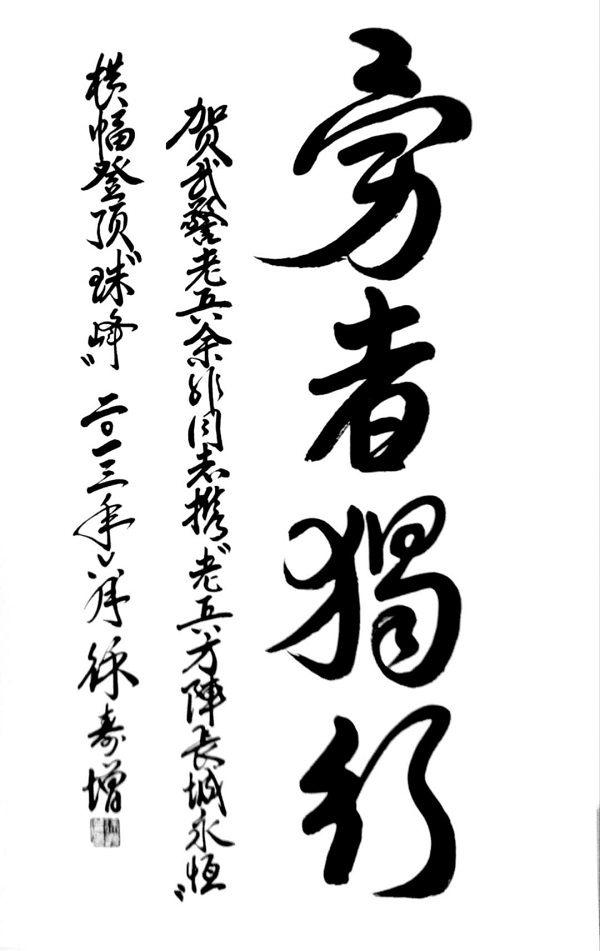 勇者獨行
贺武警老兵余非同志携"老兵方陣長城永恒"
横幅登顶"珠峰" 二〇一三年六月 徐寿增